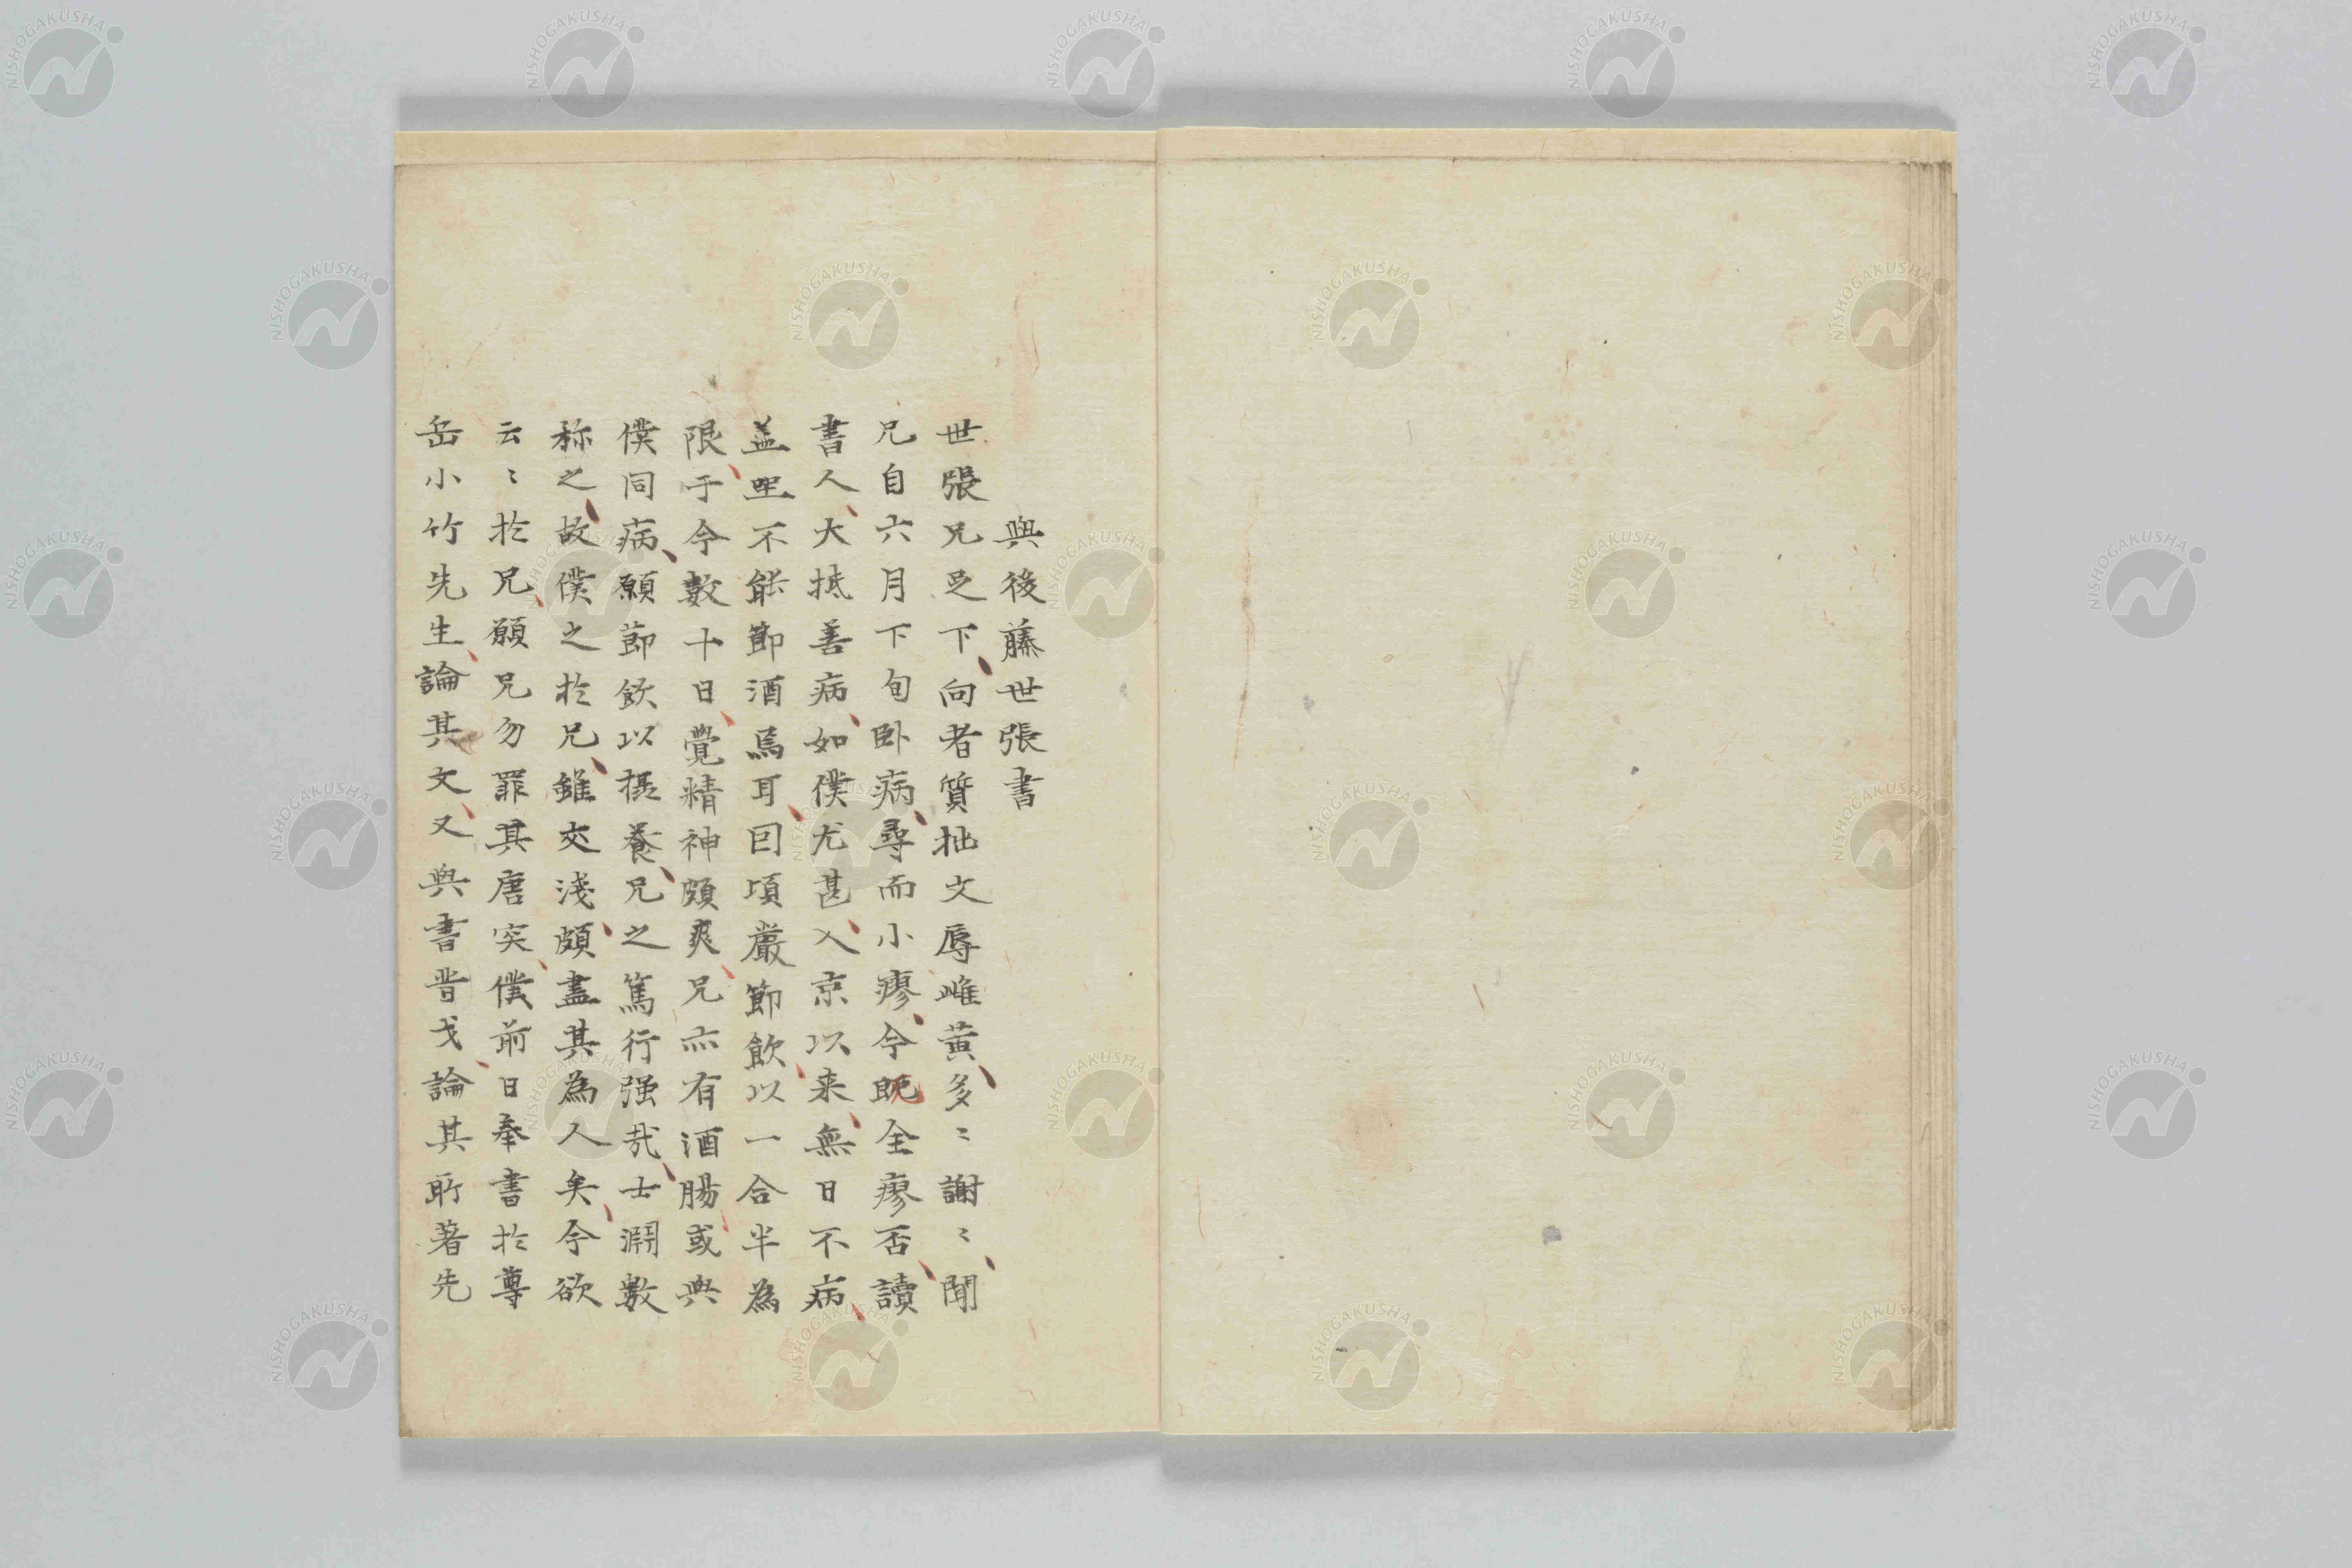 與後藤世張書
世張兄足下向者質拙文辱雌黄多〻謝〻聞
兄自六月下旬卧病尋而小瘳今既全瘳否讀
書人大抵善病如僕尤甚入京以来無日不病
盖坐不能節酒焉耳囙頃嚴節飲以一合半為
限于今數十日覺精神頗爽兄亦有酒腸或與
僕同病願節飲以摂養兄之篤行强哉士澗數
称之故僕之於兄雖交淺頗盡其為人矣今欲
云〻於兄願兄勿罪其唐突僕前日奉書於尊
岳小竹先生論其文又與書晋戈論其所著先